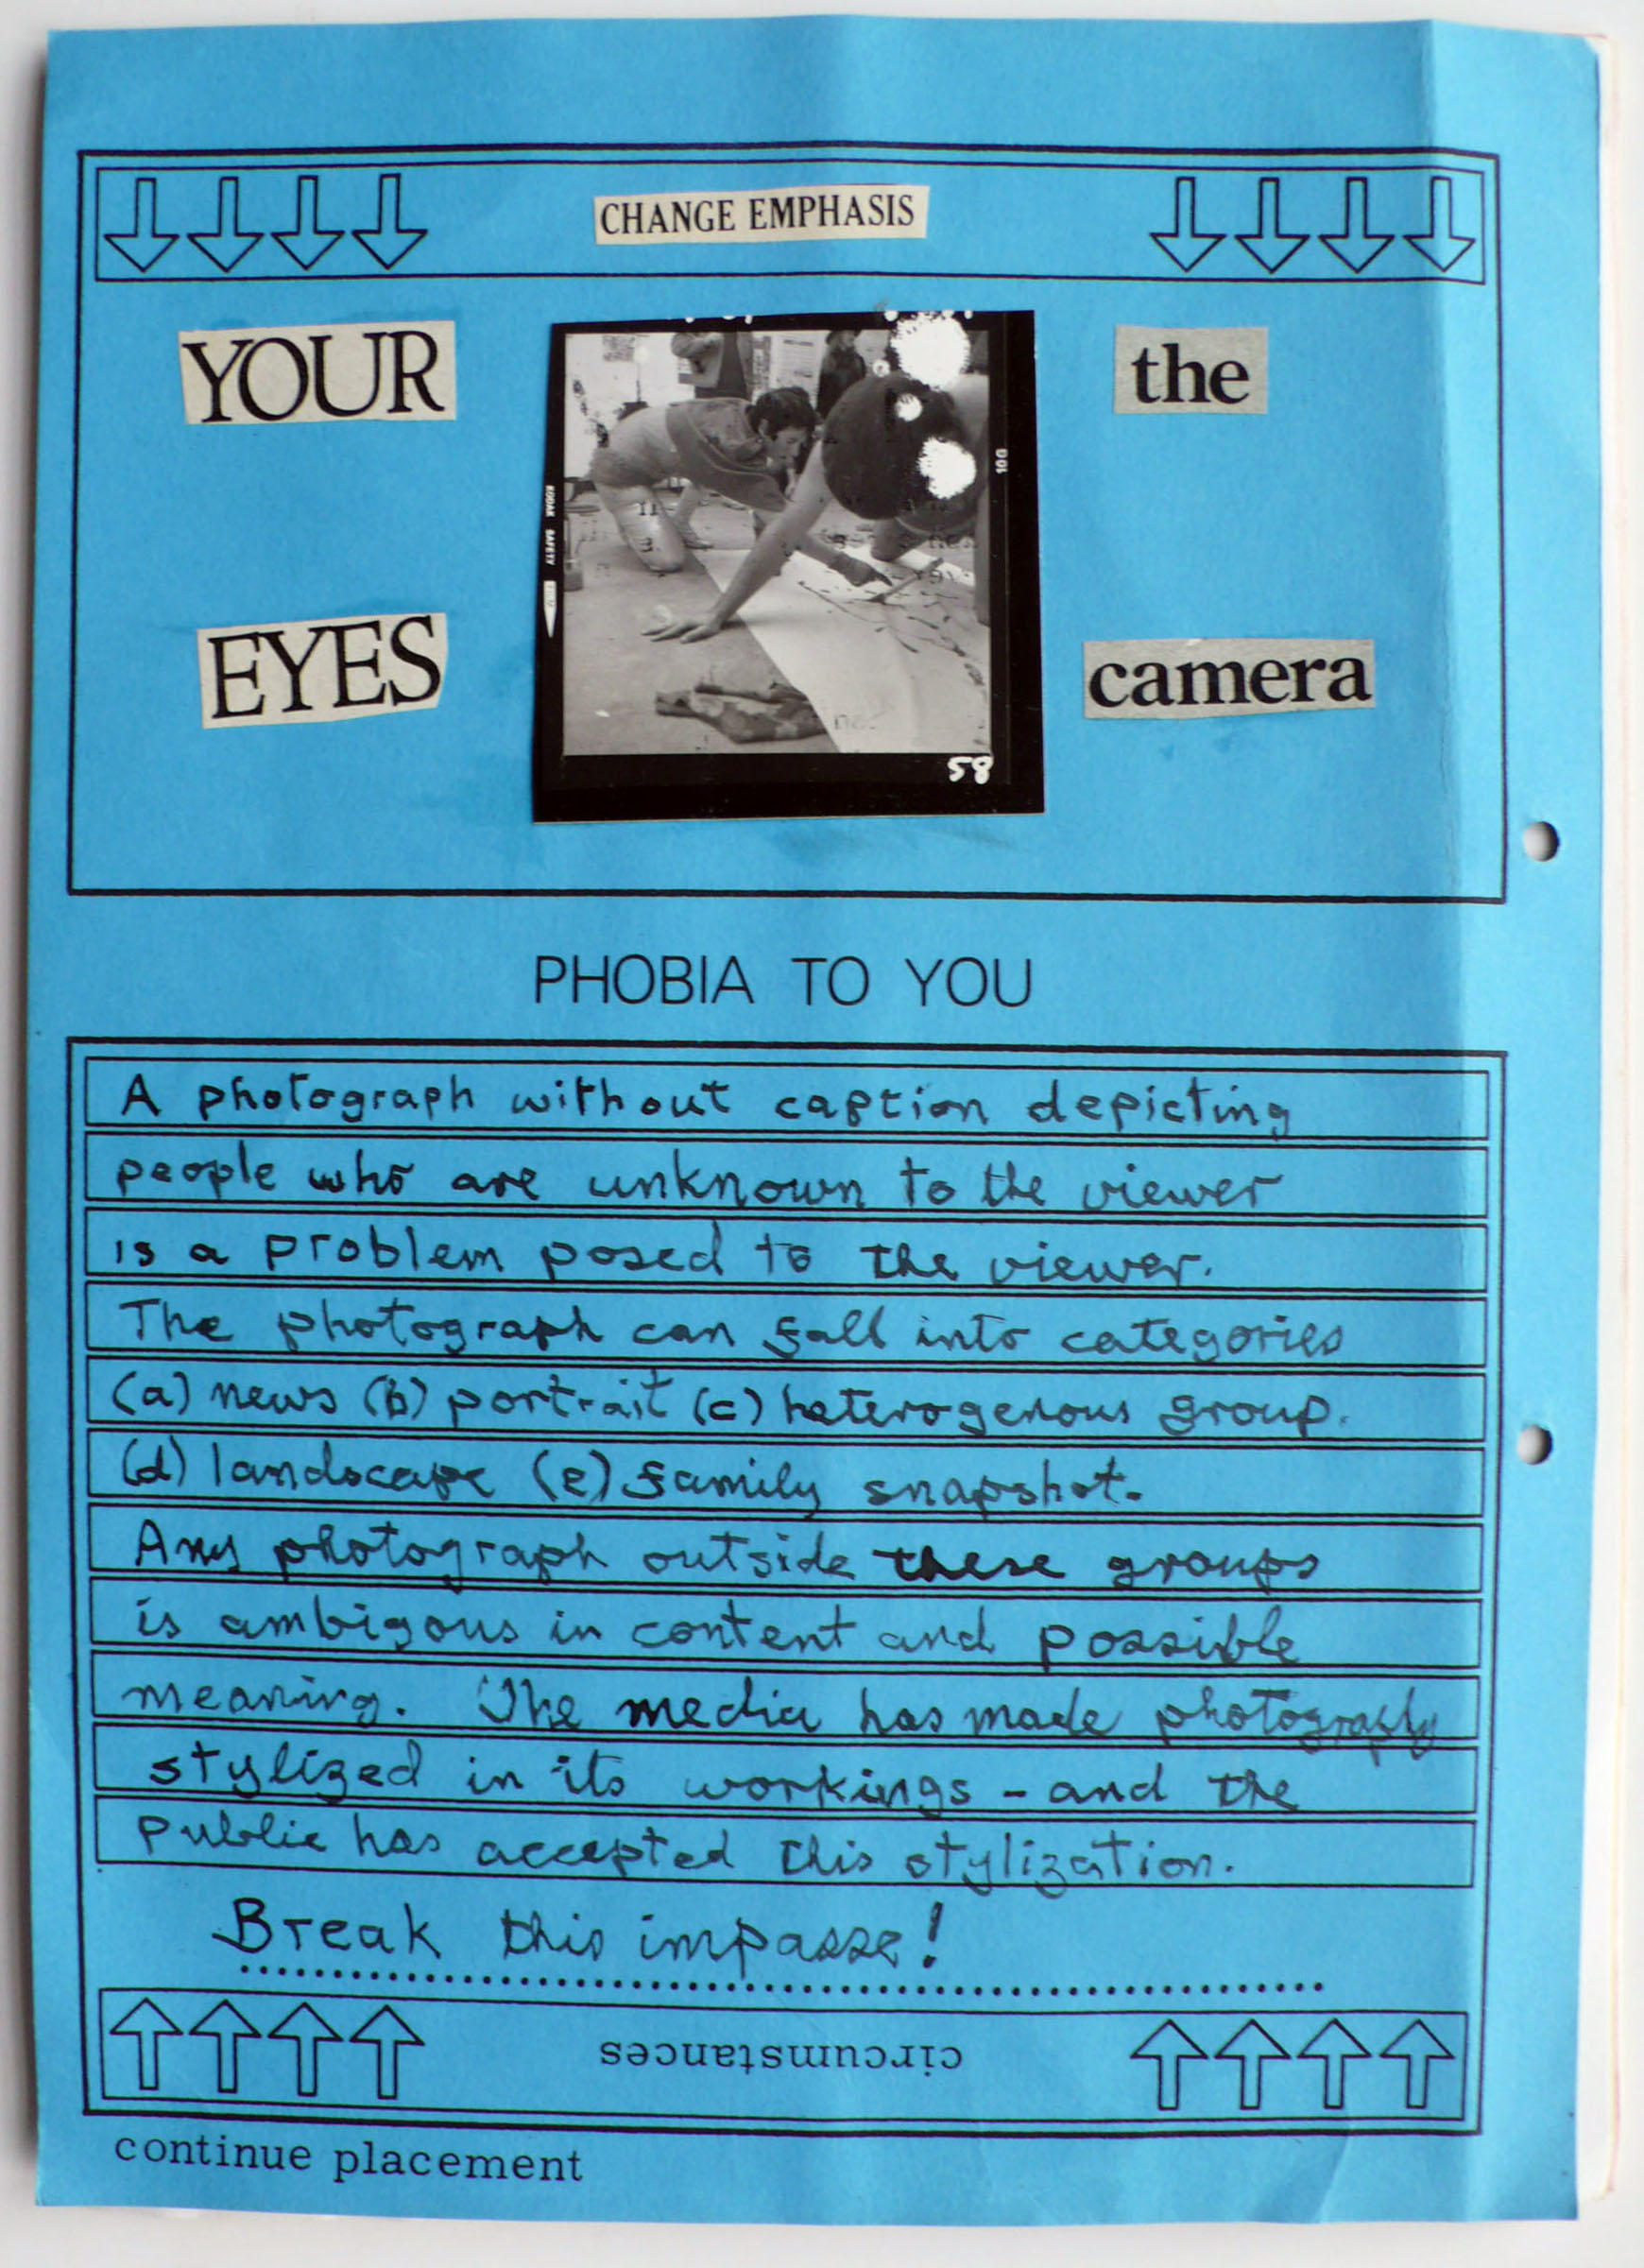 CHANGE EMPHASIS
YOUR
the
EYES
camera
KODAK SAFETY
58
PHOBIA TO YOU
A photograph without caption depicting
people who are unknown to the viewer
is a problem posed to the viewer.
The photograph can fall into categories
(a) news (b) portrait (c) heterogenous group.
(d) landscape (e) family snapshot.
Any photograph outside these groups
is ambigous in content and possible
meaning. The media has made photography
stylized in its workings - and the
public has accepted this stylization.
Break this impasse!
circumstances
continue placement